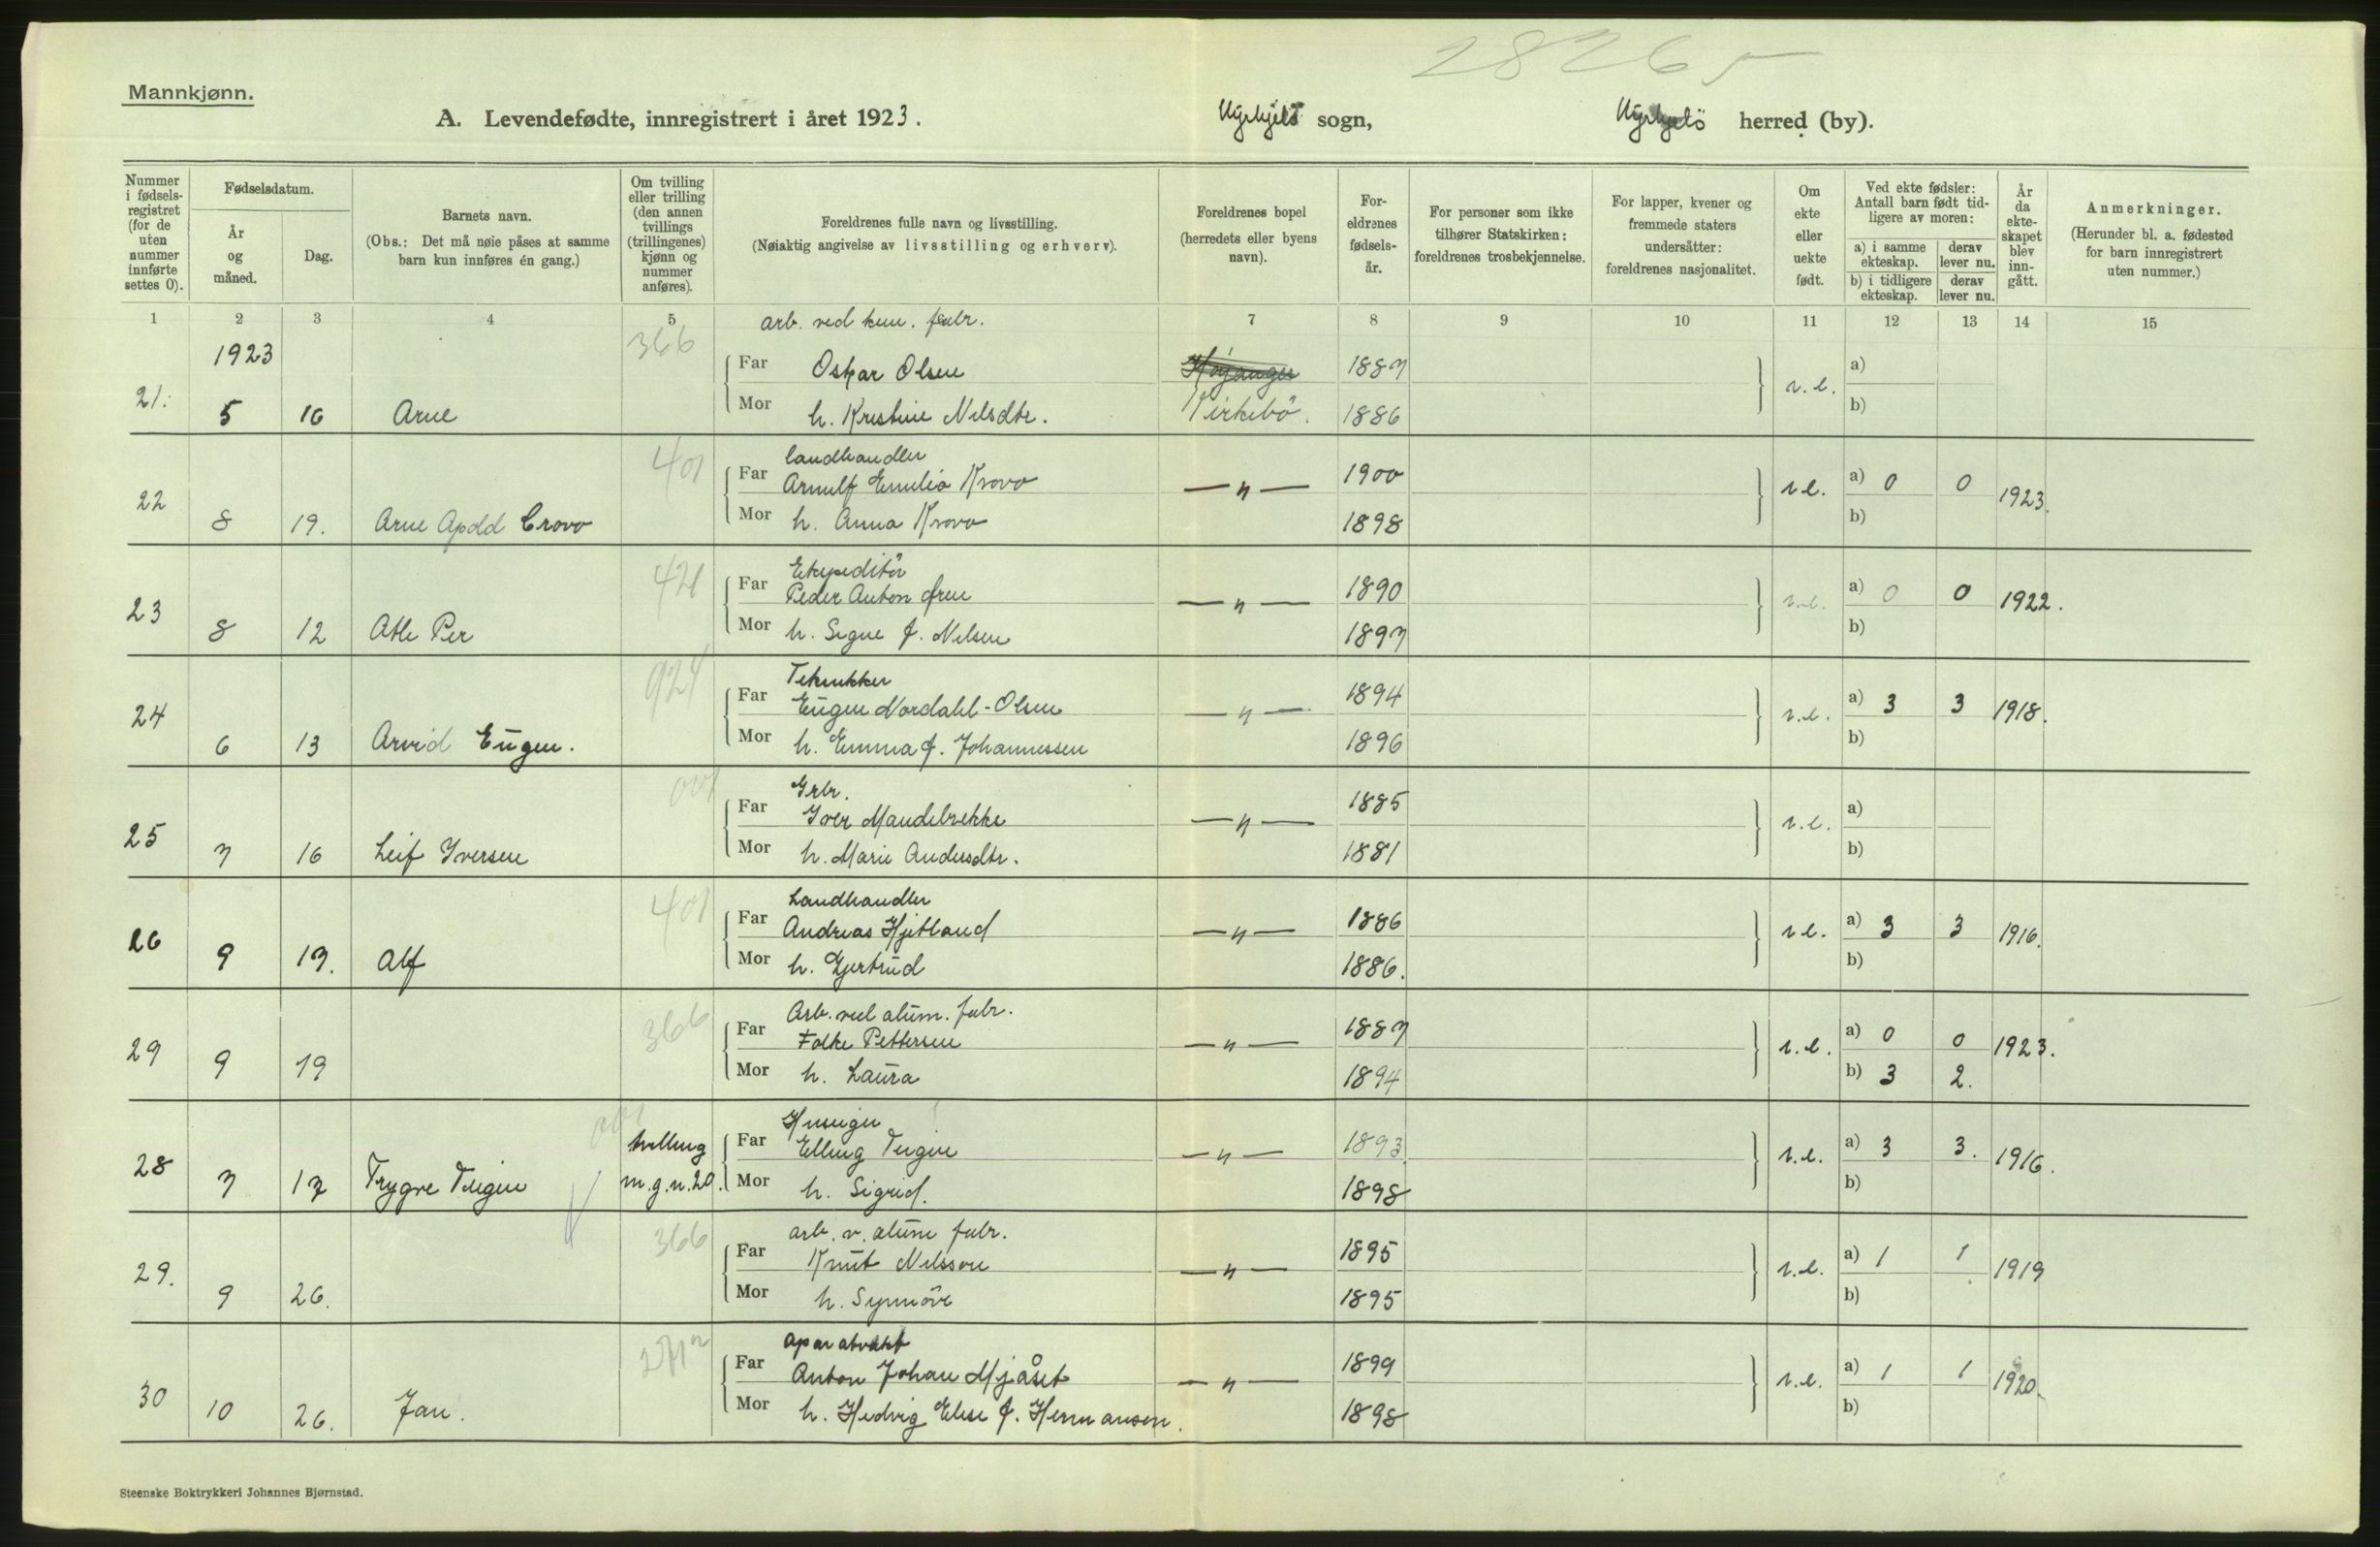 28265
Mannkjønn.
A. Levendefødte, innregistrert i året 1923. Kyrkjebö sogn, Kyrkjebö herred (by).
Nummer i fødselsregistret (for de uten nummer innførte settes 0).
Fødselsdatum.
År og måned.
Dag.
Barnets navn.
(Obs.: Det må nøie påses at samme barn kun innføres én gang.)
Om tvilling eller trilling (den annen tvillings (trillingenes) kjønn og nummer anføres).
Foreldrenes fulle navn og livsstilling.
(Nøiaktig angivelse av livsstilling og erhverv).
Foreldrenes bopel (herredets eller byens navn).
Foreldrenes fødselsår.
For personer som ikke tilhører Statskirken: foreldrenes trosbekjennelse.
For lapper, kvener og fremmede staters undersåtter: foreldrenes nasjonalitet.
Om ekte eller uekte født.
Ved ekte fødsler: Antall barn født tidligere av moren:
a) i samme ekteskap. derav lever nu.
b) i tidligere ekteskap. derav lever nu.
År da ekteskapet blev inngått.
Anmerkninger.
(Herunder bl. a. fødested for barn innregistrert uten nummer.)
1 2 3 4 5 7 8 9 10 11 12 13 14 15
1923 366 arb. ved fabr.
Far Oskar Olsen Høyanger 1887 a)
21. 5 16 Arne Mor h. Kristine Nilsdtr. Kirkebö. 1886 e. b)
401 landhandler
22 Far Arnulf Krovo —"— 1900 e. a) 0 0 1923.
8 19. Arne Apold Crovo Mor h. Anna Krovo 1898 b)
421 Ekspeditör
23 Far Peder Anton —"— 1890 e. a) 0 0 1922.
8 12 Atle Per Mor h. Signe f. Nilsen 1897 b)
924 Tekniker
24 Far Eugen Nordahl-Olsen —"— 1894 e. a) 3 3 1918.
6 13 Arvid Eugen. Mor h. Emma f. Johannessen 1896 b)
001 Grbr.
25 Far Iver Mandelrekke —"— 1885 e. a)
7 16 Leif Iversen Mor h. Marie Andersdtr. 1881 b)
401 Landhandler
26 Far Andreas Hjetland —"— 1886 e. a) 3 3 1916.
9 17. Alf Mor h. Gjertrud 1886. b)
366 Arb. ved alum. fabr.
29 Far Folke Pettersen —"— 1887 e. a) 0 0 1923.
9 19 Mor h. Laura 1894 b) 3 2.
001 Huseiger
28 tvilling Far Elling Teigen —"— 1893 e. a) 3 3. 1916.
7 17 Trygve Teigen m.g.n.20. Mor h. Sigrid. 1898 b)
366 arb. v. alum fabr.
29. Far Knut Nilsson —"— 1895 e. a) 1 1 1919
9 26. Mor h. Synnöve 1895 b)
aparatvakt
30 Far Anton Johan Mjåset —"— 1899 e. a) 1 1 1920
10 26. Jan. Mor h. Hedvig Elise f. Hermansen. 1898 b)
Steenske Boktrykkeri Johannes Bjørnstad.